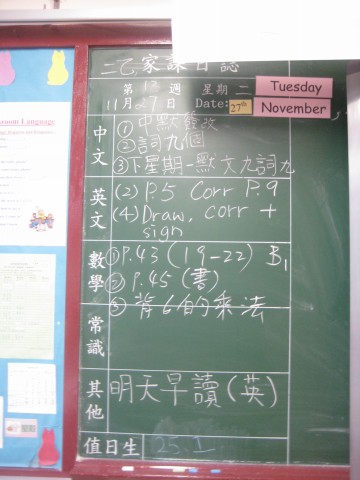 二乙家課日誌
第13週 星期二 Tuesday
11月27日 Date: 27th November
中文
①中默簽改
②詞九個
③下星期一默文九詞九
英文
(2) P.5 Corr P.9
(4) Draw, corr +
sign
數學
①P.43 (19-22) B1
②P.45 (書)
③背6的乘法
常識
其他
明天早讀(英)
值日生
25.1